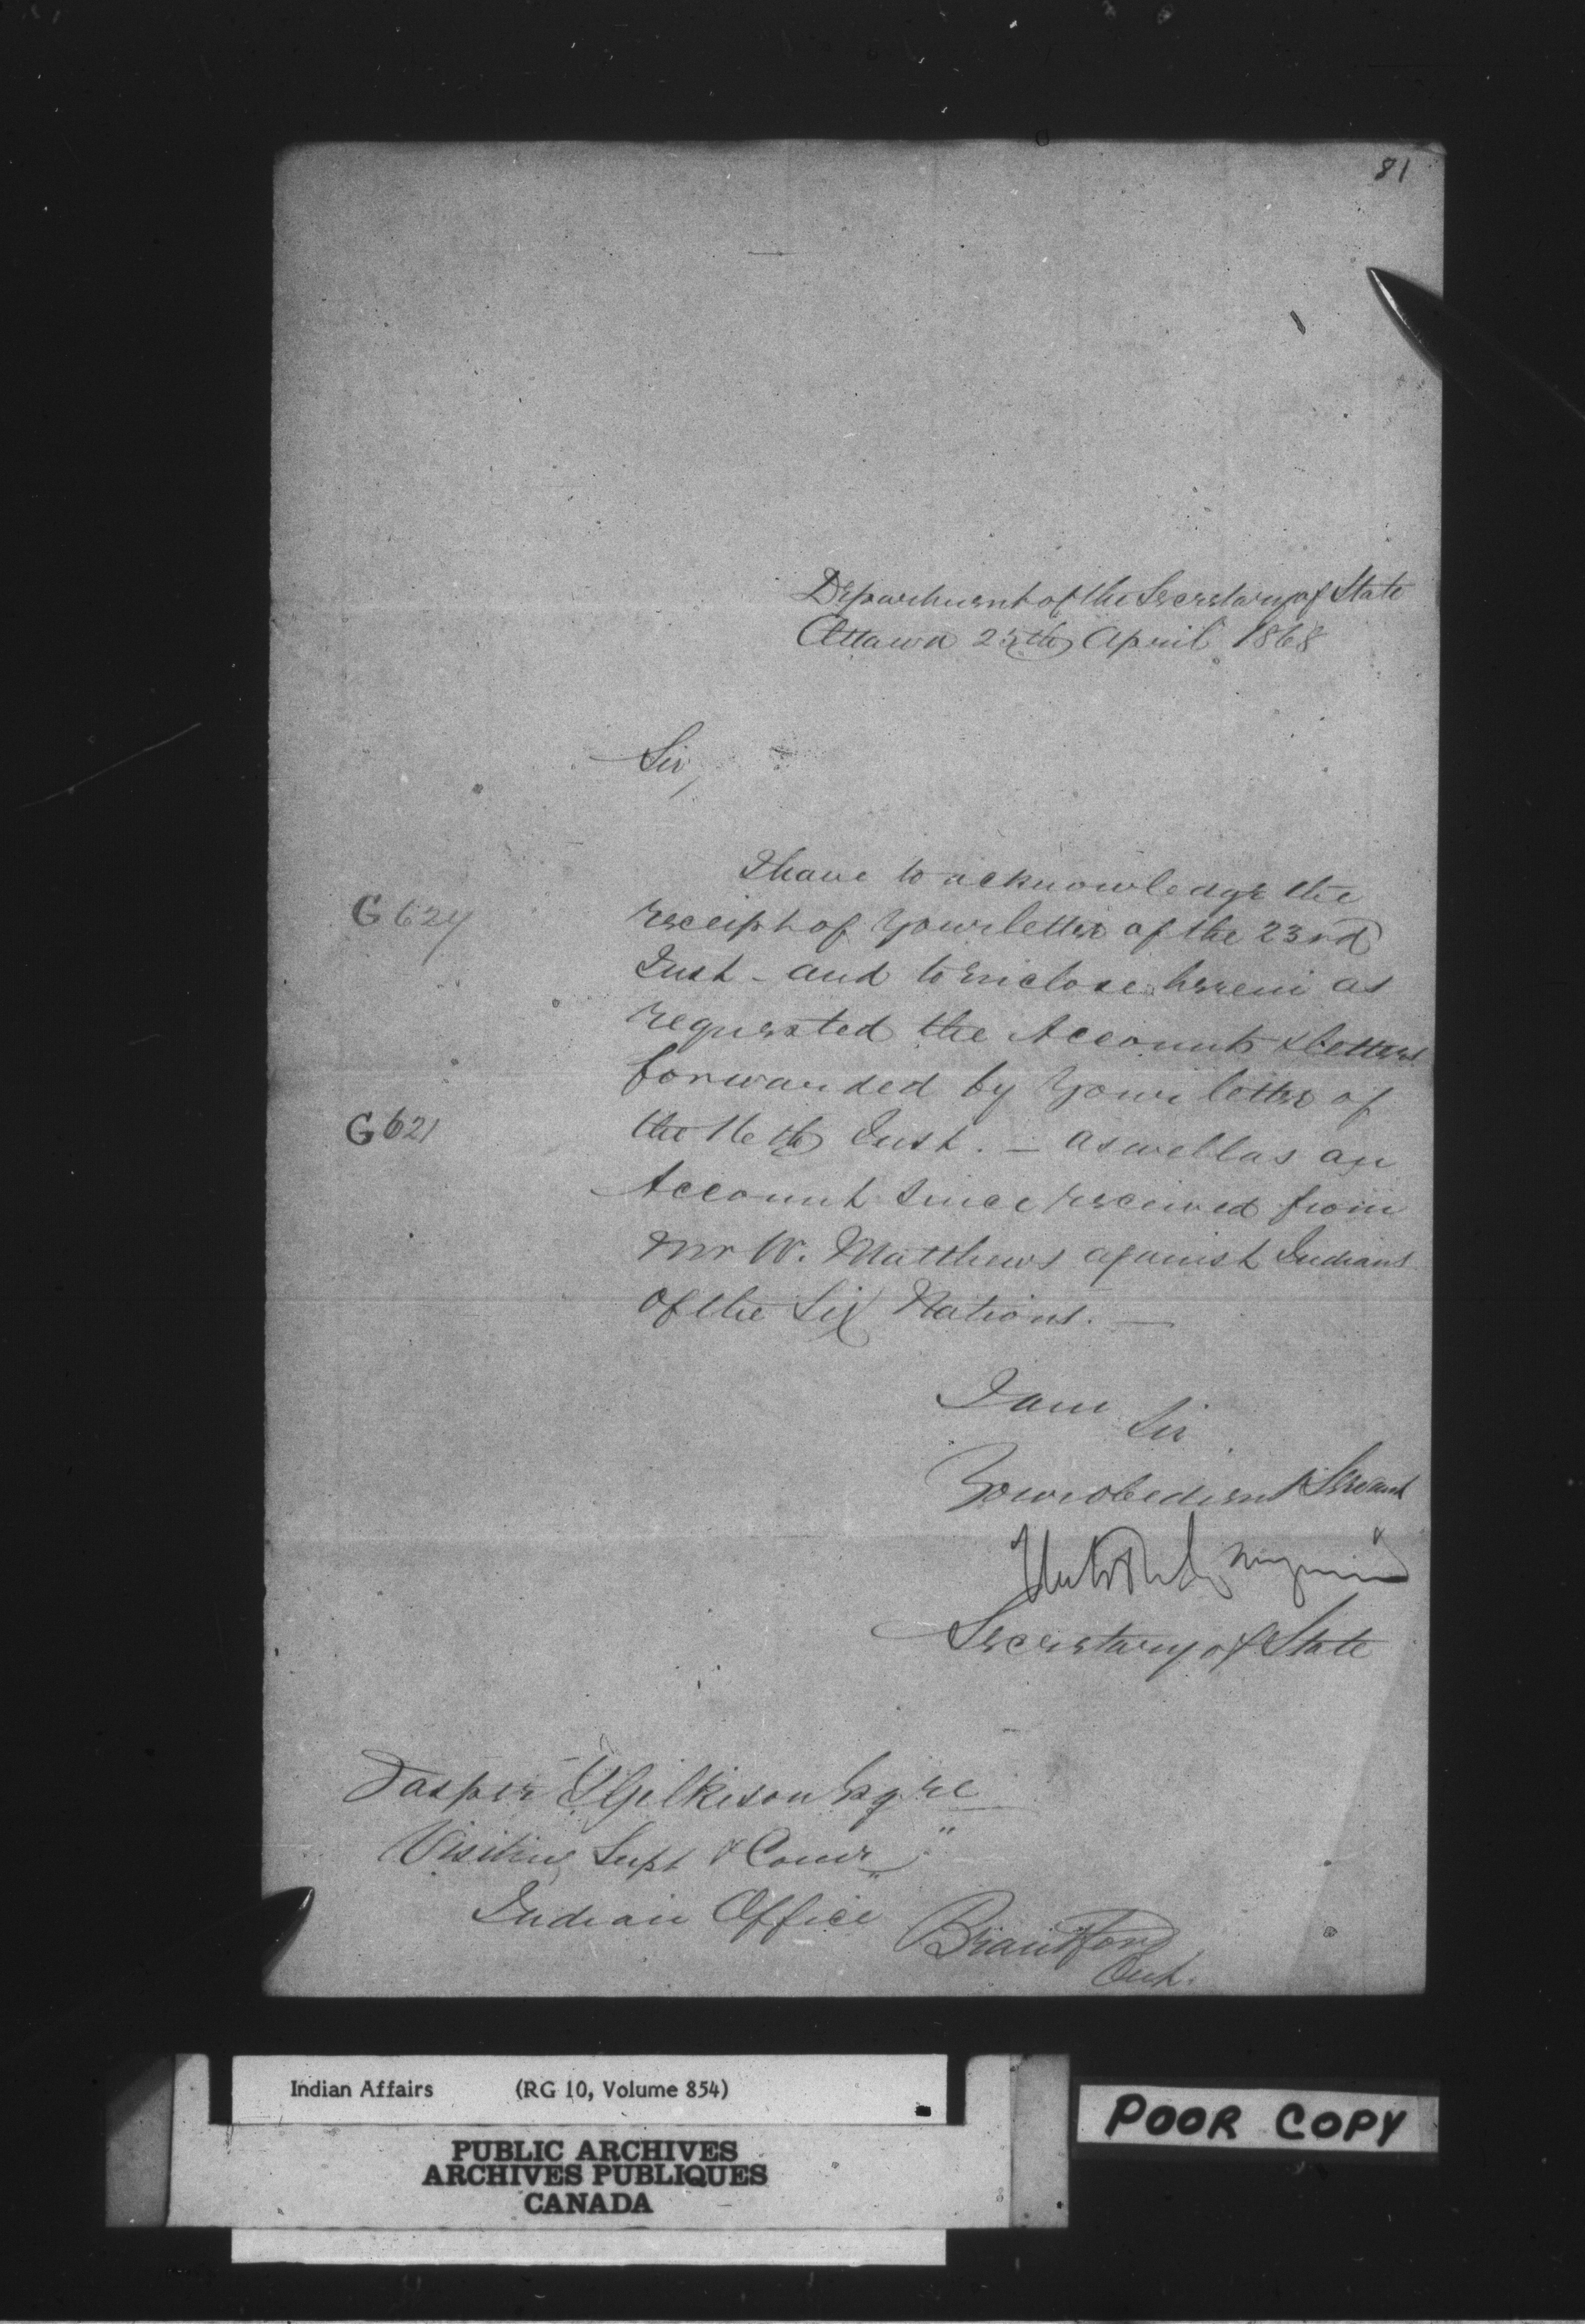 81
Department of the Secretary of State
Ottawa 25th April 1868
Sir,
I have to acknowledge the
G 624
receipt of your letter of the 23rd
Inst - and to inclose herein as
requested the Accounts & letters
forwarded by your letter of
G 621
the 16th Inst. - as well as an
Account since received from
Mr W. Matthews against Indians
of the Six Nations. -
I am
Sir
Your obedient Servant
Secretary of State
Jasper T Gilkison Esqre
Visiting Supt & Comr
Indian Office
Brantford
Ont.
Indian Affairs (RG 10, Volume 854)
PUBLIC ARCHIVES
ARCHIVES PUBLIQUES
CANADA
POOR COPY